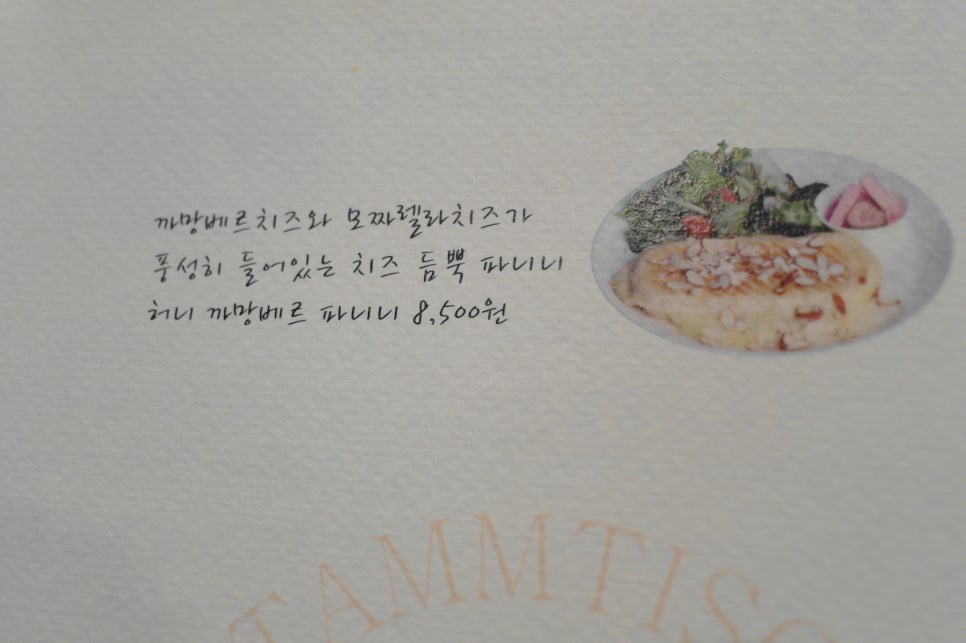 까망베르치즈와 모짜렐라치즈가
풍성히 들어있는 치즈 듬뿍 파니니
허니 까망베르 파니니 8,500원
TAMMTISO